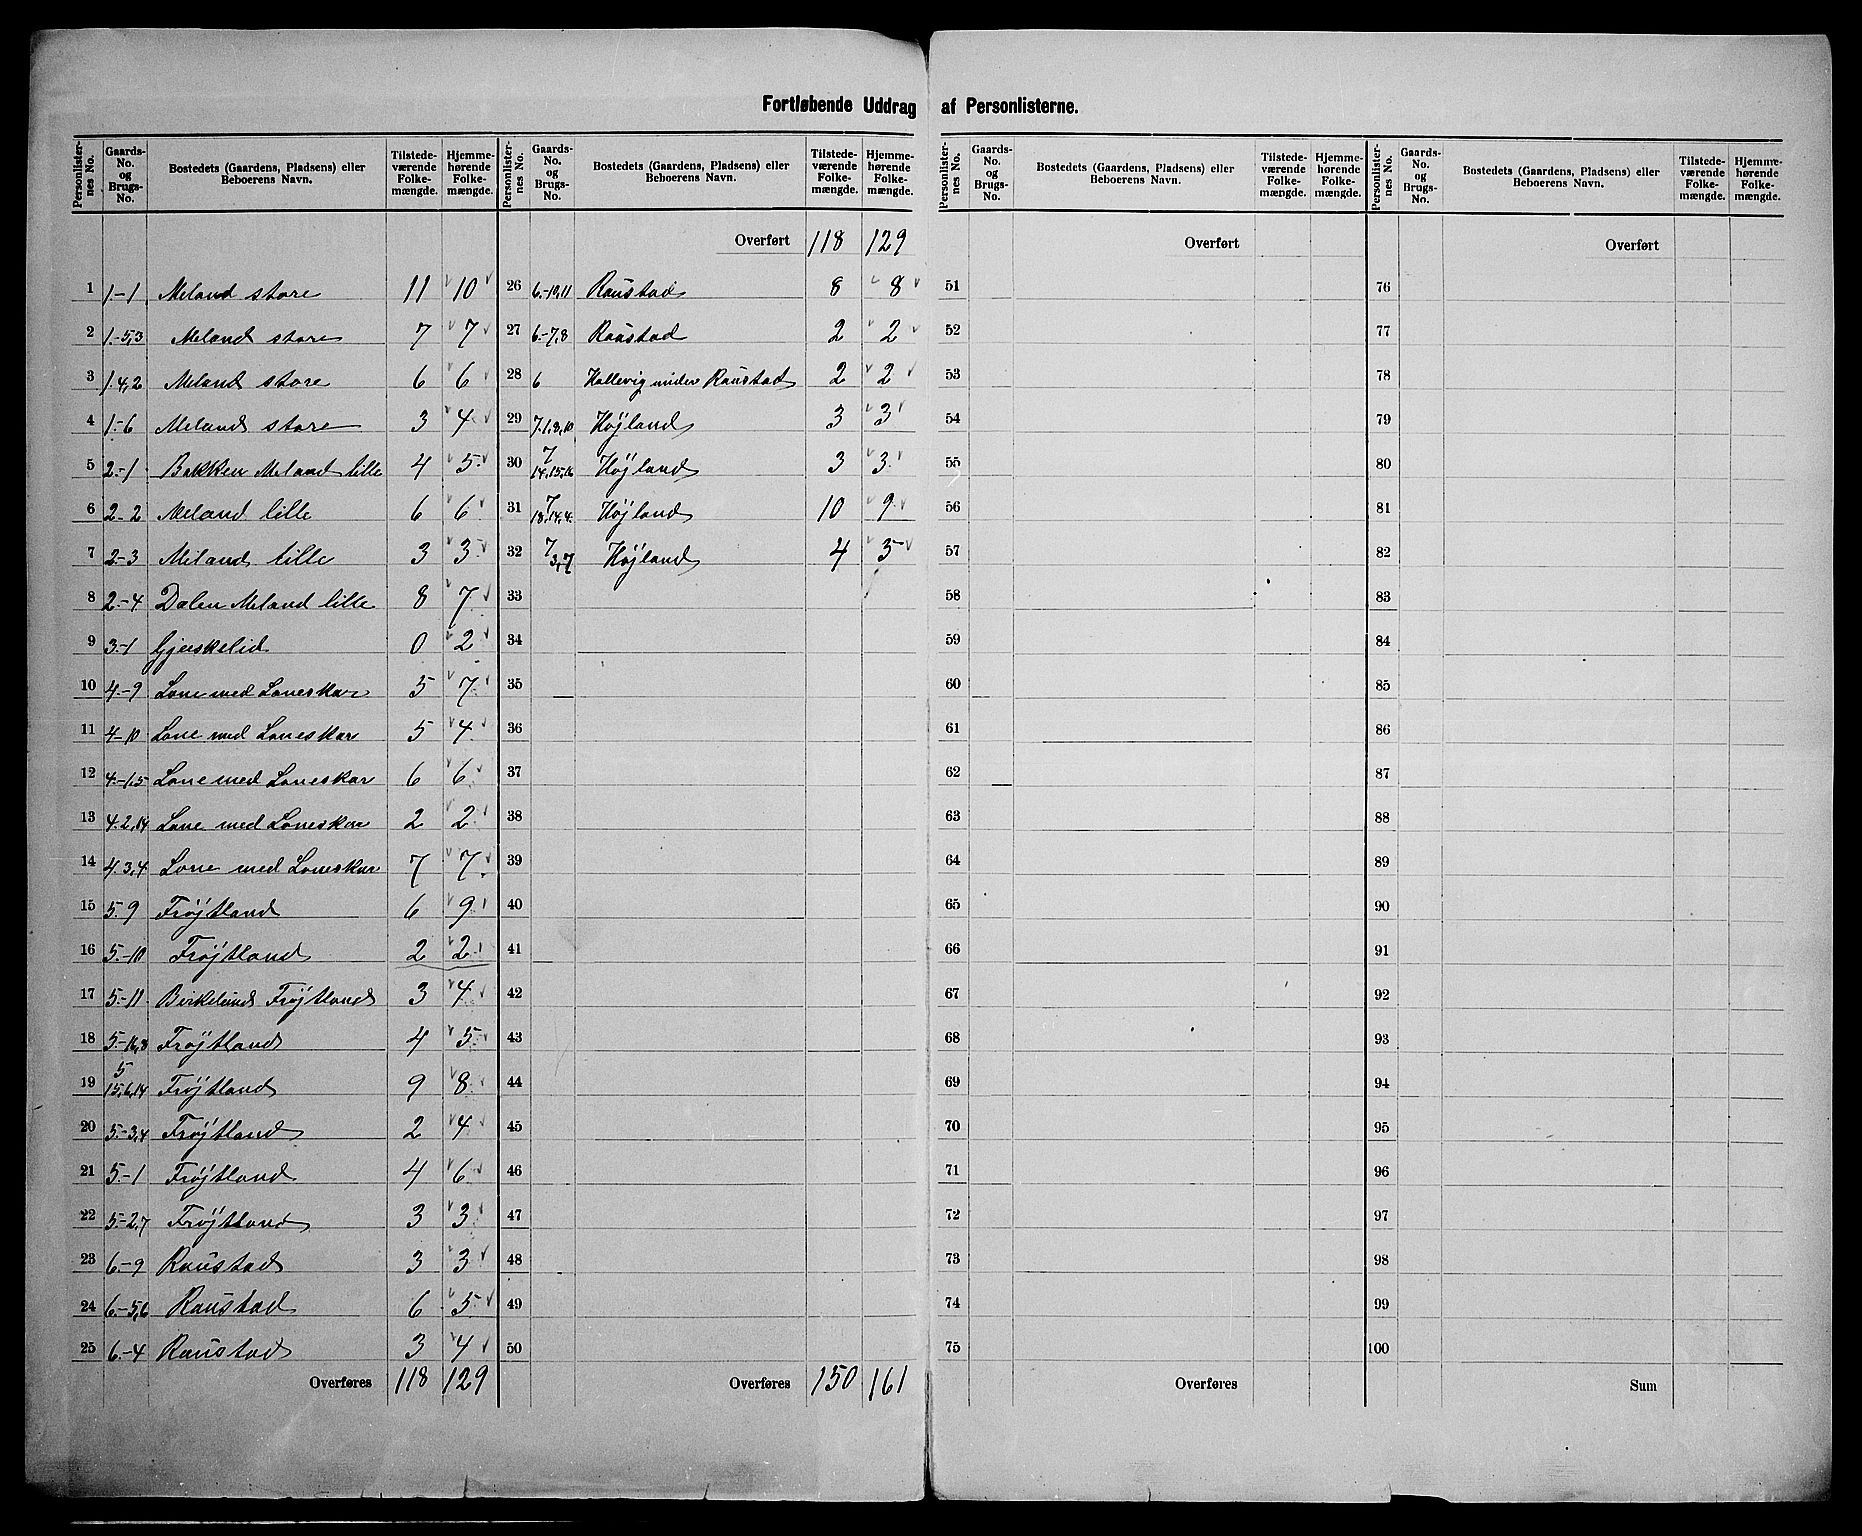 Fortløbende Uddrag af Personlisterne.
Personlisternes No. | Gaards-No. og Brugs-No. | Bostedets (Gaardens, Pladsens) eller Beboerens Navn. | Tilstedeværende Folkemængde. | Hjemmehørende Folkemængde.
1 1-1 Meland store 11 10
2 1-5,3 Meland store 7 7
3 1.4,2 Meland store 6 6
4 1-6 Meland store 3 4
5 2-1 Bakken Meland lille 4 5
6 2-2 Meland lille 6 6
7 2-3 Meland lille 3 3
8 2-4 Dalen Meland lille 8 7
9 3-1 Gjerskelid 0 2
10 4-9 Lone med Loneskar 5 7
11 4-10 Lone med Loneskar 5 4
12 4-1,5 Lone med Loneskar 6 6
13 4.2,14 Lone med Loneskar 2 2
14 4.3,4 Lone med Loneskar 7 7
15 5.9 Frøjtland 6 9
16 5-10 Frøjtland 2 2
17 5-11 Birkelund Frøjtland 3 4
18 5-16,8 Frøjtland 4 5
19 5 15,6,14 Frøjtland 9 8
20 5-3,4 Frøjtland 2 4
21 5-1 Frøjtland 4 6
22 5-2,7 Frøjtland 3 3
23 6-9 Raustad 3 3
24 6-5,6 Raustad 6 5
25 6-4 Raustad 3 4
Overføres 118 129
Personlisternes No. | Gaards-No. og Brugs-No. | Bostedets (Gaardens, Pladsens) eller Beboerens Navn. | Tilstedeværende Folkemængde. | Hjemmehørende Folkemængde.
Overført 118 129
26 6-10,11 Raustad 8 8
27 6-7,8 Raustad 2 2
28 6 Hallevig under Raustad 2 2
29 7.1,8,10 Højland 3 3
30 7 14,15,16 Højland 3 3
31 7 18,14,4 Højland 10 9
32 7 3,7 Højland 4 5
33
34
35
36
37
38
39
40
41
42
43
44
45
46
47
48
49
50
Overføres 150 161
Personlisternes No. | Gaards-No. og Brugs-No. | Bostedets (Gaardens, Pladsens) eller Beboerens Navn. | Tilstedeværende Folkemængde. | Hjemmehørende Folkemængde.
Overført
51
52
53
54
55
56
57
58
59
60
61
62
63
64
65
66
67
68
69
70
71
72
73
74
75
Overføres
Personlisternes No. | Gaards-No. og Brugs-No. | Bostedets (Gaardens, Pladsens) eller Beboerens Navn. | Tilstedeværende Folkemængde. | Hjemmehørende Folkemængde.
Overført
76
77
78
79
80
81
82
83
84
85
86
87
88
89
90
91
92
93
94
95
96
97
98
99
100
Sum